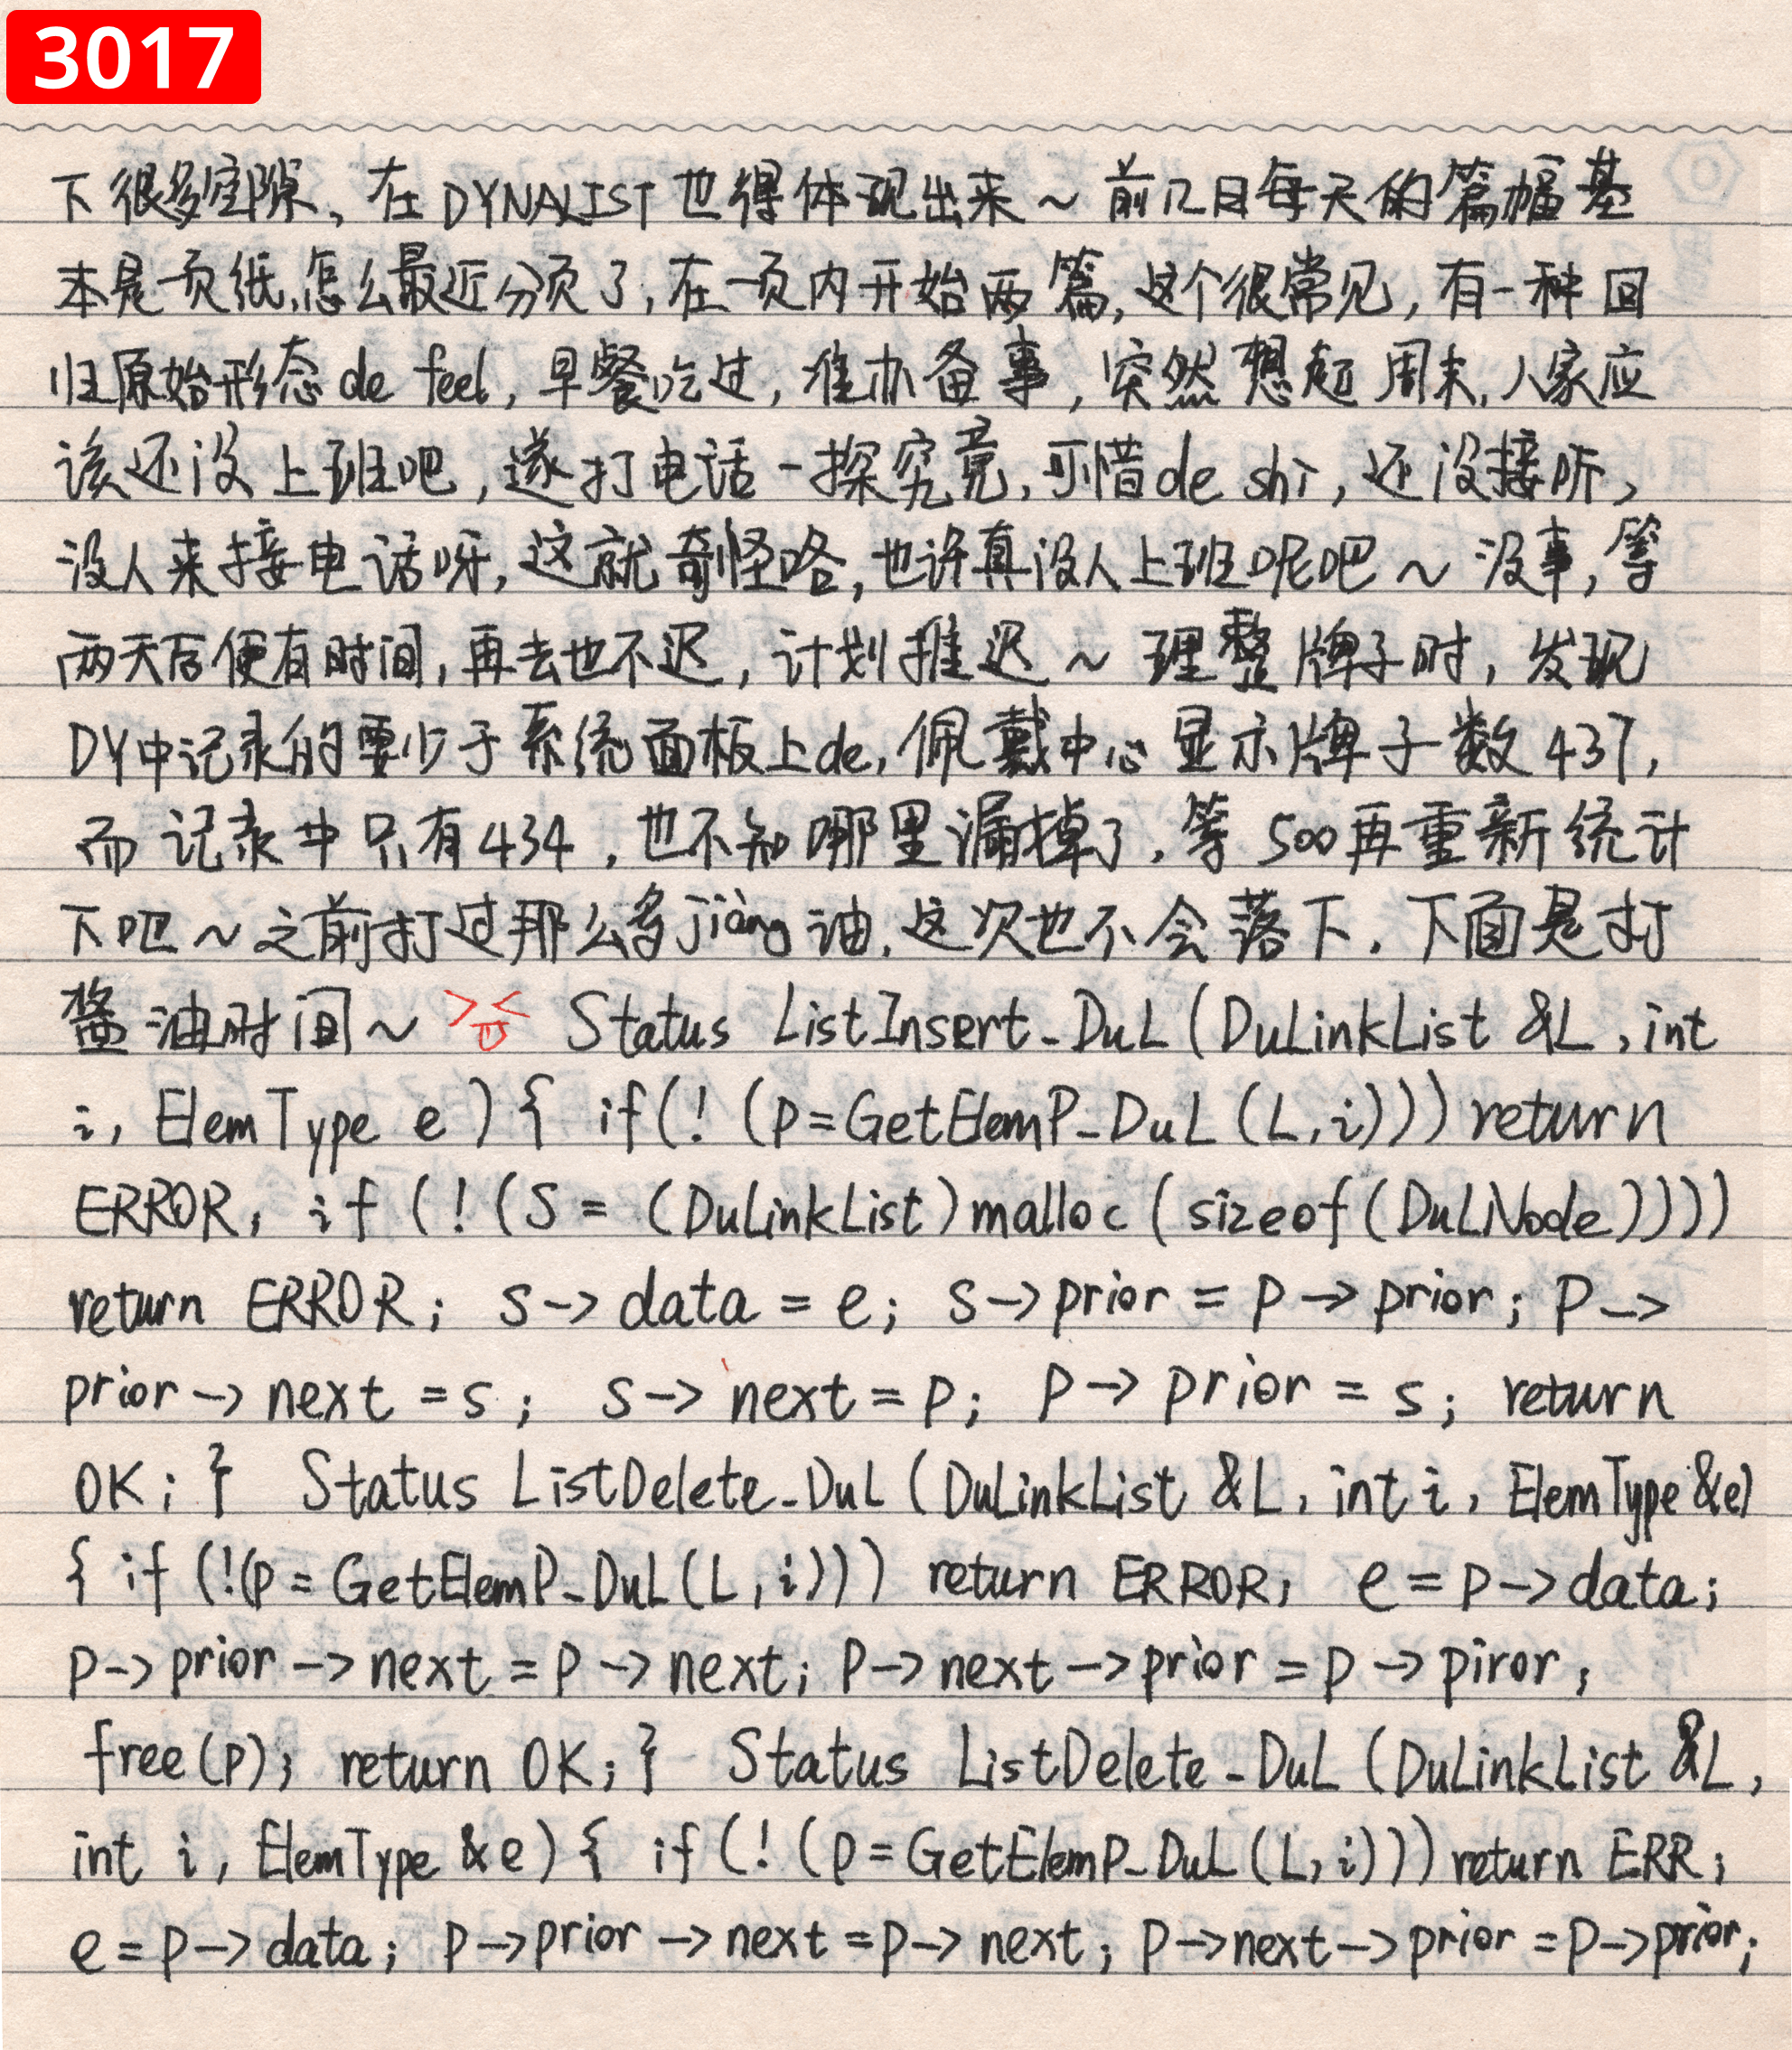 3017
下很多空隙、在DYNALIST也得体现出来~前几日每天的篇幅基
本是一页纸,怎么最近分页了,在一页内开始两篇,这个很常见,有一种回
归原始形态de feel,早餐吃过,准办备事,突然想起周末,人家应
该还没上班吧,遂打电话一探究竟,可惜de shi,还没接听,
没人来接电话呀,这就奇怪咯,也许真没人上班呢吧~没事,等
两天后便有时间,再去也不迟,计划推迟~理整牌子时,发现
DY中记录的要少于系统面板上de,佩戴中心显示牌子数437,
而记录中只有434,也不知哪里漏掉了,等500再重新统计
下吧~之前打过那么多jiàng油,这次也不会落下.下面是打
酱油时间~ Status ListInsert_DuL(DuLinkList &L,int
i, ElemType e){ if(!(p=GetElemP_DuL(L,i)))return
ERROR; if(!(S=(DuLinkList)malloc(sizeof(DuLNode))))
return ERROR; s->data=e; s->prior=p->prior; p->
prior->next=s; s->next=p; p->prior=s; return
OK;} Status ListDelete_DuL(DuLinkList &L, int i, ElemType &e)
{ if(!(p=GetElemP_DuL(L,i))) return ERROR; e=p->data;
p->prior->next=p->next; p->next->prior=p->piror;
free(p); return OK;} Status ListDelete_DuL(DuLinkList &L,
int i, ElemType &e){ if(!(p=GetElemP_DuL(L,i)))return ERR;
e=p->data; p->prior->next=p->next; p->next->prior=p->prior;